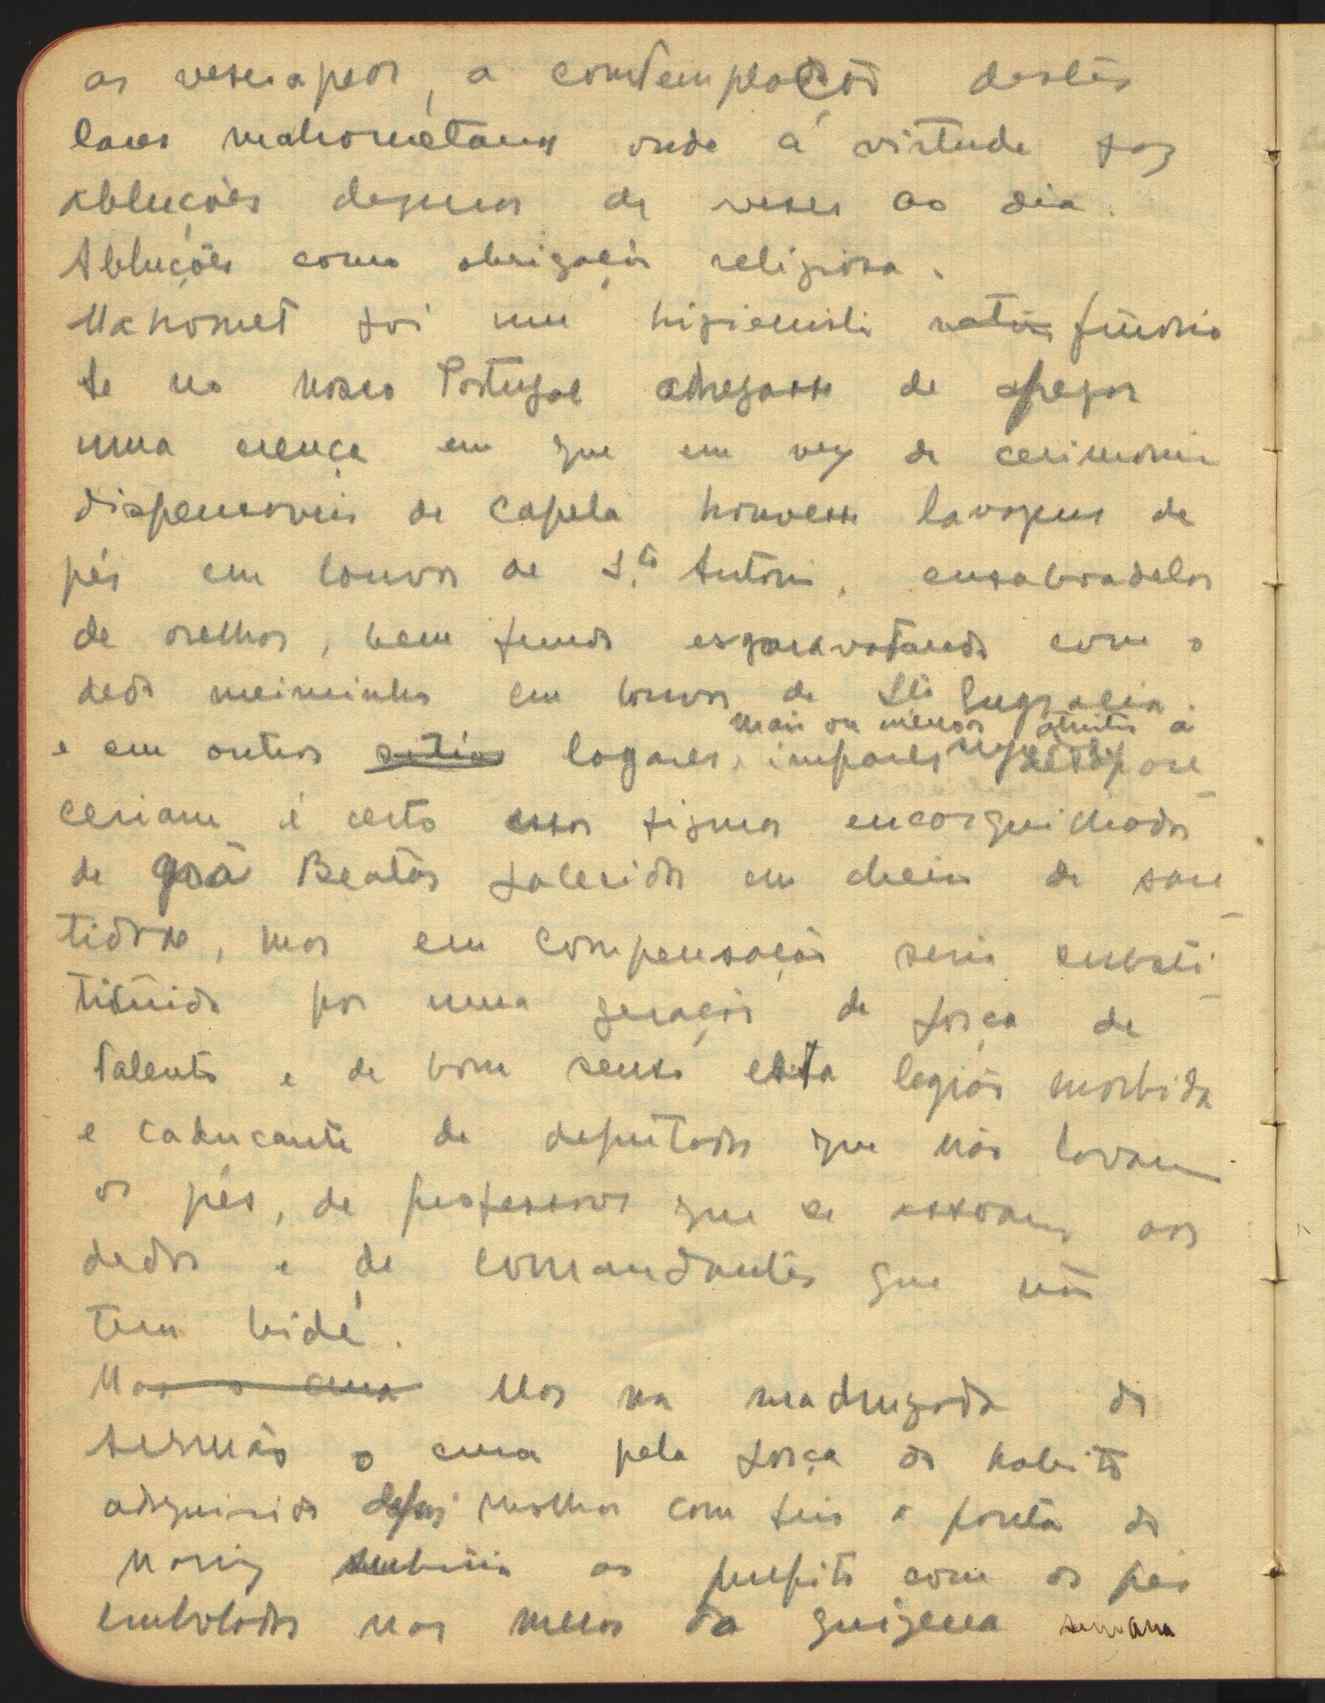 as vesciapeor, a contemplação destes
lares mahometanos onde a virtude faz
abluções dezenas de vezes ao dia.
Abluções como obrigação religiosa.
Mahomet foi um higienista
Se no nosso Portugal chegasse de apegar
uma crença em que em vez de cerimonia
dispensaveis de capela houvesse lavagens de
pés em louvor de S.to Antonio, ensaboadelas
de orelhas, bem fundo esgaravatando com o
dedo meiminho em louvor de Sta Engracia.
mais ou menos
e em outros sitios logares, impares
ceriam é certo essas figuras encorquilhadas
de Beatas falecidas em cheiro de san
tidade, mas em compensação seria substi
tituida por uma geração de força de
talento e de bom senso esta legião morbida
e caducante de deputados que não lavam
os pés, de professores que se assoam aos
dedos e de comandantes que não
tem bidé.
Mas o cura Mas na madrugada do
sermão o cura pela força do habito
adquirido depois molhar com frio a ponta do
nariz subiria ao pulpito com os pés
embolados nas meias da quinzena semana